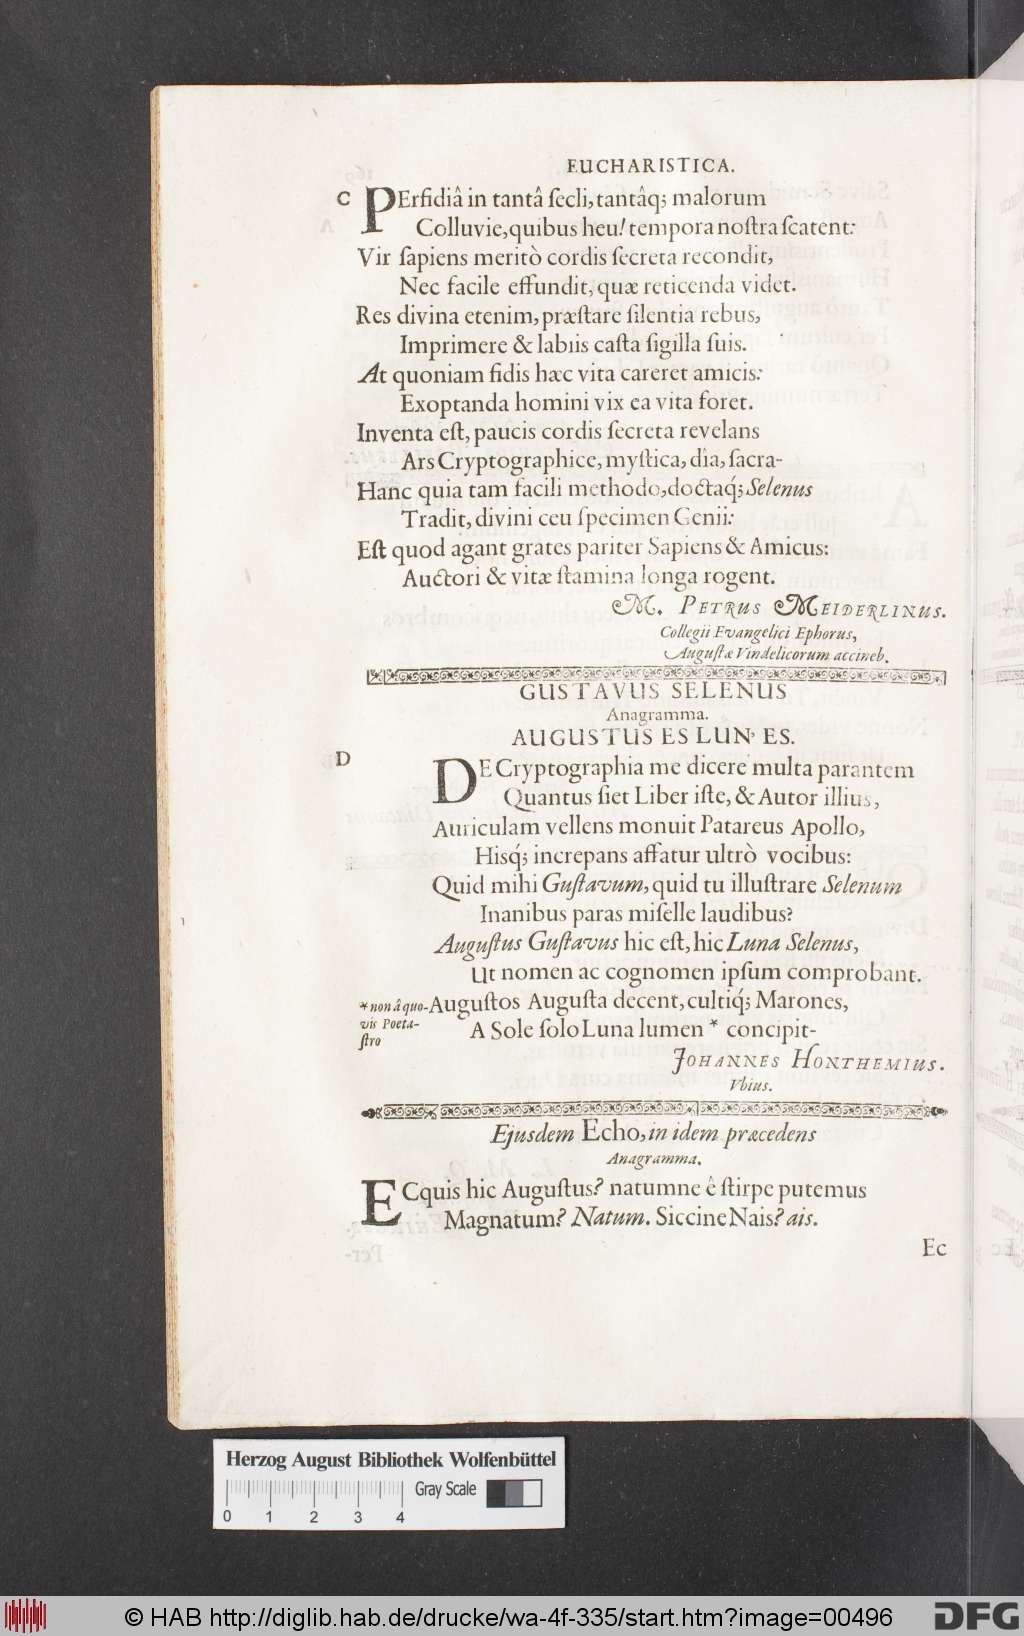 EUCHARISTICA.
C
PErfidiâ in tantâ ſecli, tantâq; malorum
Colluvie, quibus heu! tempora noſtra ſcatent:
Vir ſapiens meritò cordis ſecreta recondit,
Nec facile effundit, quæ reticenda videt.
Res divina etenim, præſtare ſilentia rebus,
Imprimere & labiis caſta ſigilla ſuis.
At quoniam fidis hæc vita careret amicis:
Exoptanda homini vix ea vita foret.
Inventa eſt, paucis cordis ſecreta revelans
Ars Cryptographice, myſtica, dia, ſacra-
Hanc quia tam facili methodo, doctaq́; Selenus
Tradit, divini ceu ſpecimen Genii:
Eſt quod agant grates pariter Sapiens & Amicus:
Auctori & vitæ ſtamina longa rogent.
M. PETRUS MEIDERLINUS.
Collegii Evangelici Ephorus,
Auguſtæ Vindelicorum accineb.
GUSTAVUS SELENUS
Anagramma.
AUGUSTUS ES LUN' ES.
D
DE Cryptographia me dicere multa parantem
Quantus ſiet Liber iſte, & Autor illius,
Auriculam vellens monuit Patareus Apollo,
Hisq́; increpans affatur ultrò vocibus:
Quid mihi Guſtavum, quid tu illuſtrare Selenum
Inanibus paras miſelle laudibus?
Auguſtus Guſtavus hic eſt, hic Luna Selenus,
Ut nomen ac cognomen ipſum comprobant.
Auguſtos Auguſta decent, cultiq́; Marones,
A Sole ſolo Luna lumen * concipit-
* non â quo-
vis Poeta-
ſtro
JOHANNES HONTHEMIUS.
Vbius.
Ejusdem Echo, in idem præcedens
Anagramma.
ECquis hic Auguſtus? natumne ê ſtirpe putemus
Magnatum? Natum. Siccine Nais? ais.
Ec
Herzog August Bibliothek Wolfenbüttel
Gray Scale
0 1 2 3 4
© HAB http://diglib.hab.de/drucke/wa-4f-335/start.htm?image=00496
HAB
DFG